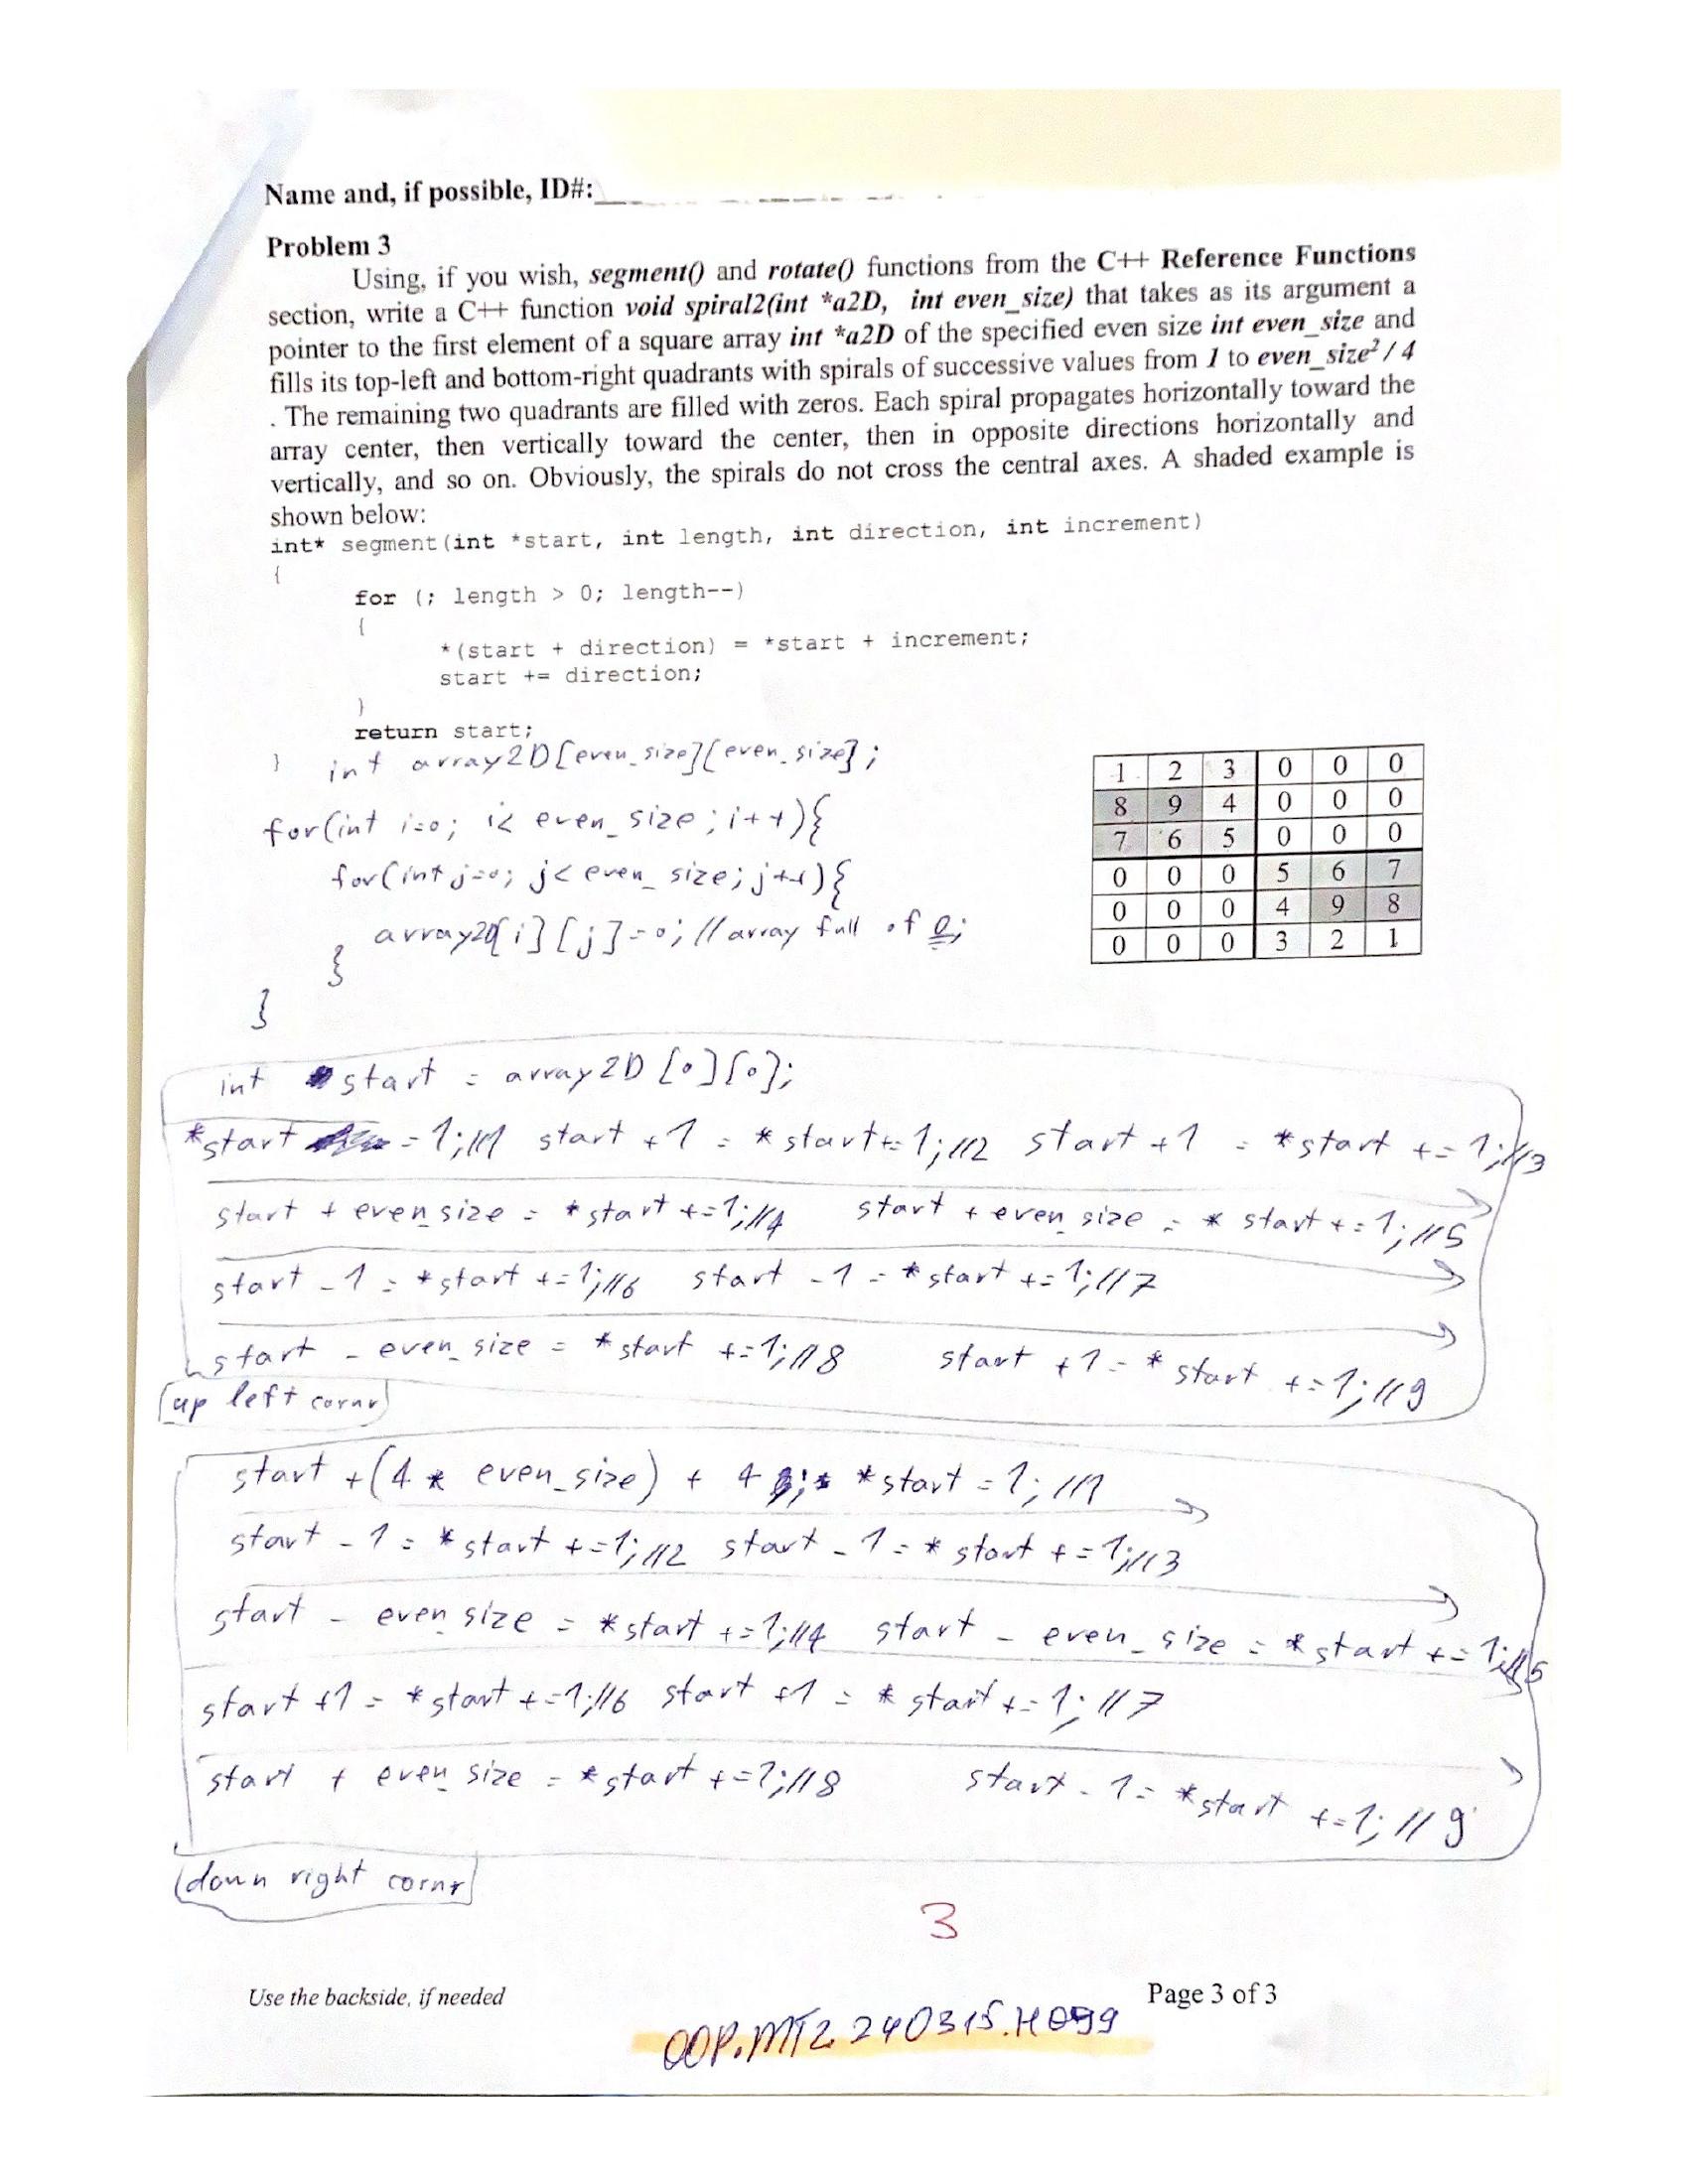 Name and, if possible, ID#:
Problem 3
Using, if you wish, segment() and rotate() functions from the C++ Reference Functions
section, write a C++ function void spiral2(int *a2D, int even_size) that takes as its argument a
pointer to the first element of a square array int *a2D of the specified even size int even_size and
fills its top-left and bottom-right quadrants with spirals of successive values from 1 to even_size² / 4
. The remaining two quadrants are filled with zeros. Each spiral propagates horizontally toward the
array center, then vertically toward the center, then in opposite directions horizontally and
vertically, and so on. Obviously, the spirals do not cross the central axes. A shaded example is
shown below:
int* segment(int *start, int length, int direction, int increment)
{
for (; length > 0; length--)
{
*(start + direction) = *start + increment;
start += direction;
}
return start;
}
int array2D[even_size][even_size];
for(int i=0; i< even_size; i++){
for(int j=0; j< even_size; j++){
array2D[i][j]=0; //array full of 0;
}
}
1 2 3 0 0 0
8 9 4 0 0 0
7 6 5 0 0 0
0 0 0 5 6 7
0 0 0 4 9 8
0 0 0 3 2 1
int start = array2D[0][0];
*start = 1; //1 start + 1 = *start += 1; //2 start + 1 = *start += 1; //3
start + even_size = *start += 1; //4 start + even_size = *start += 1; //5
start - 1 = *start += 1; //6 start - 1 = *start += 1; //7
start - even_size = *start += 1; //8 start + 1 = *start += 1; //9
up left cornr
start + (4 * even_size) + 4 ; *start = 1; //1
start - 1 = *start += 1; //2 start - 1 = *start += 1; //3
start - even_size = *start += 1; //4 start - even_size = *start += 1; //5
start + 1 = *start += 1; //6 start + 1 = *start += 1; //7
start + even_size = *start += 1; //8 start - 1 = *start += 1; //9
down right cornr
3
Use the backside, if needed
Page 3 of 3
OOP.MT2 240315.H099